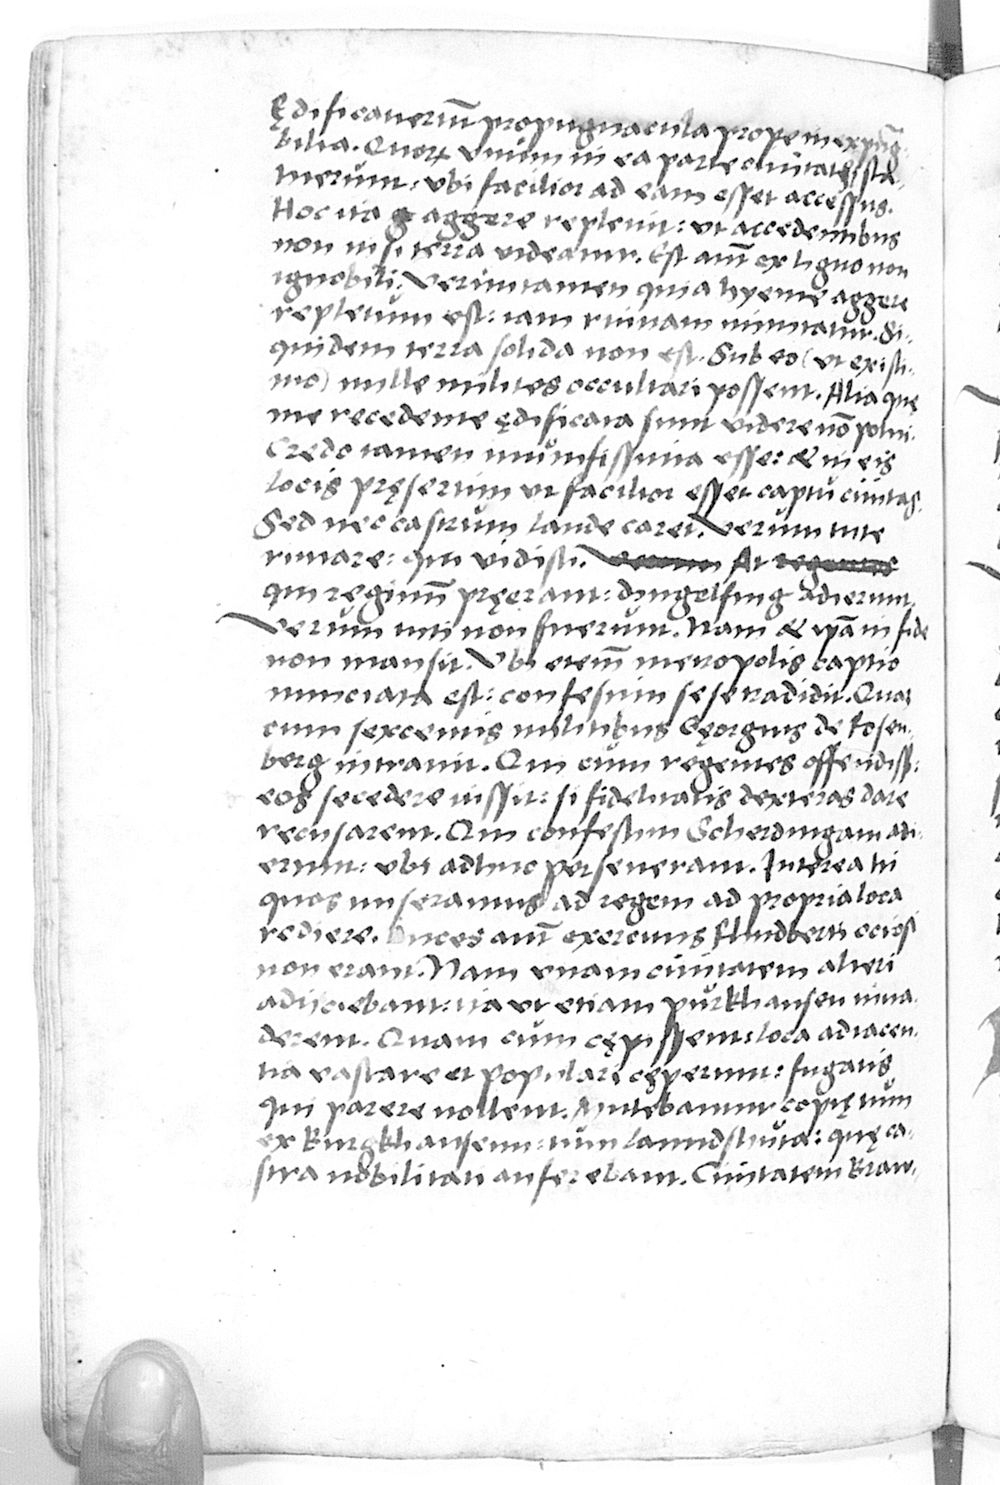 Ędificauerūt propugnacula prope inexpūg-
bilia. Quoꝝ vnum in ea parte ciuitatis sta-
tuerunt: vbi facilior ad eam esset accessus.
Hoc ita aggere repleuit: vt accedentibus
non nisi terra videatur. Est aūt ex ligno non
ignobili. Veruntamen quia hyeme aggere
repletum est: iam ruinam minitatur. Si-
quidem terra solida non est. Sub eo (vt existi-
mo) mille milites occultari possent. Alia quę
me recedente ędificata sunt videre nō potui.
Credo tamen munitissima esse: & in eis
locis pręsertim vt facilior esset captu ciuitas.
Sed nec castrum laude caret. Verum tute
rimare: qui vidisti. At
qui regimini pręerant: dingelfing adierunt.
Verum tuti non fuerunt. Nam & ipsa in fide
non mansit. Vbi etenī metropolis captio
nunciata est: confestim sese tradidit. Quā
cum sexcentis militibus Georgius de Rosen-
berg intrauit. Qui cum regentes offendiss:
eos secedere iussit: si fidelitatis dexteras dare
recusarent. Qui confestim Scherdingam adi-
erunt: vbi adhuc perseuerant. Interea hi
quos miseramus ad regem ad propria loca
rediere. Duces aūt exercitus Ruodberti ociosi
non erant. Nam vnam ciuitatem alteri
adijciebant: ita vt etiam purkhausen inua-
derent. Quam cum cępissent: loca adiacen-
tia vastare et populari cęperunt: fugatis
qui parere nollent. Mittebantur copię tum
ex Burgkhausenn: tum lanndshuta: quę ca-
stra nobilitati auferebant. Ciuitatem Braw-